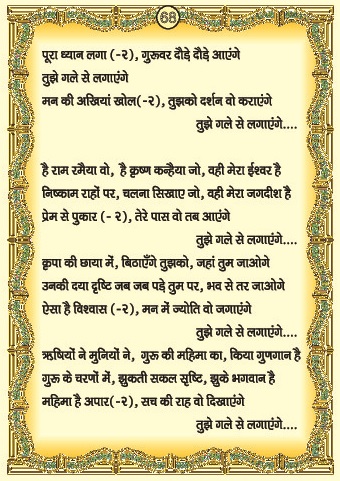 68
पूरा ध्यान लगा (-२), गुरूवर दौड़े दौड़े आएंगे
तुझे गले से लगाएंगे
मन की अखियां खोल(-२), तुझको दर्शन वो कराएंगे
तुझे गले से लगाएंगे....
है राम रमैया वो, है कृष्ण कन्हैया जो, वही मेरा ईश्वर है
निष्काम राहों पर, चलना सिखाए जो, वही मेरा जगदीश है
प्रेम से पुकार (- २), तेरे पास वो तब आएंगे
तुझे गले से लगाएंगे....
कृपा की छाया में, बिठाएँगे तुझको, जहां तुम जाओगे
उनकी दया दृष्टि जब जब पड़े तुम पर, भव से तर जाओगे
ऐसा है विश्वास (-२), मन में ज्योति वो जगाएंगे
तुझे गले से लगाएंगे....
ऋषियों ने मुनियों ने, गुरू की महिमा का, किया गुणगान है
गुरू के चरणों में, झुकती सकल सृष्टि, झुके भगवान है
महिमा है अपार(-२), सच की राह वो दिखाएंगे
तुझे गले से लगाएंगे....